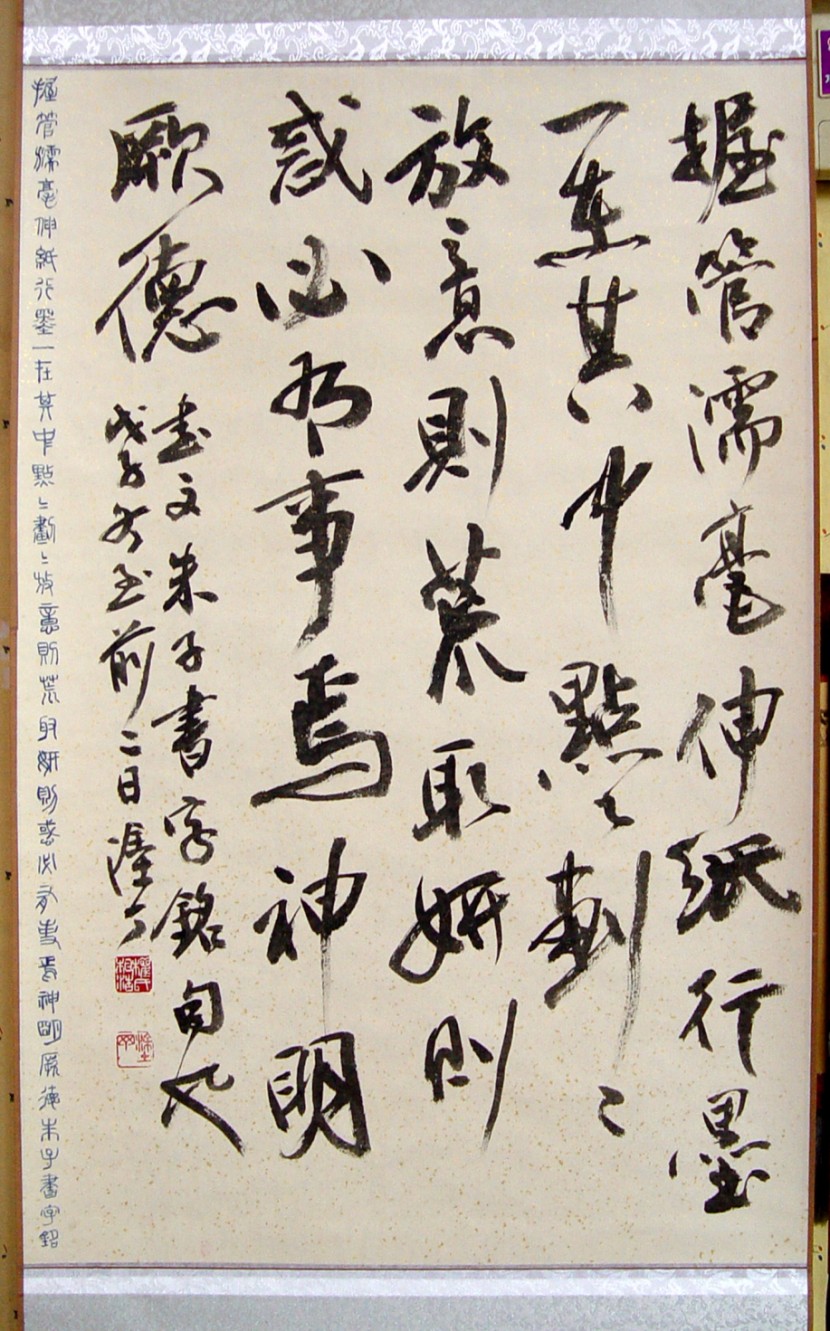 握管濡毫伸紙行墨
一在其中點〻劃〻
放意則荒取姸則
惑必有事焉神明
厥德
書文朱子書字銘句也
戊子冬至前二日
握管濡毫伸紙行墨一在其中點〻劃〻放意則荒取姸則惑必有事焉神明厥德朱子書字銘